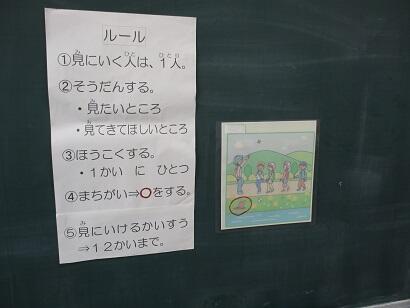 ルール
①見にいく人は、1人。
②そうだんする。
・見たいところ
・見てきてほしいところ
③ほうこくする。
・1かい に ひとつ
④まちがい⇒○をする。
⑤見にいけるかいすう
⇒12かいまで。